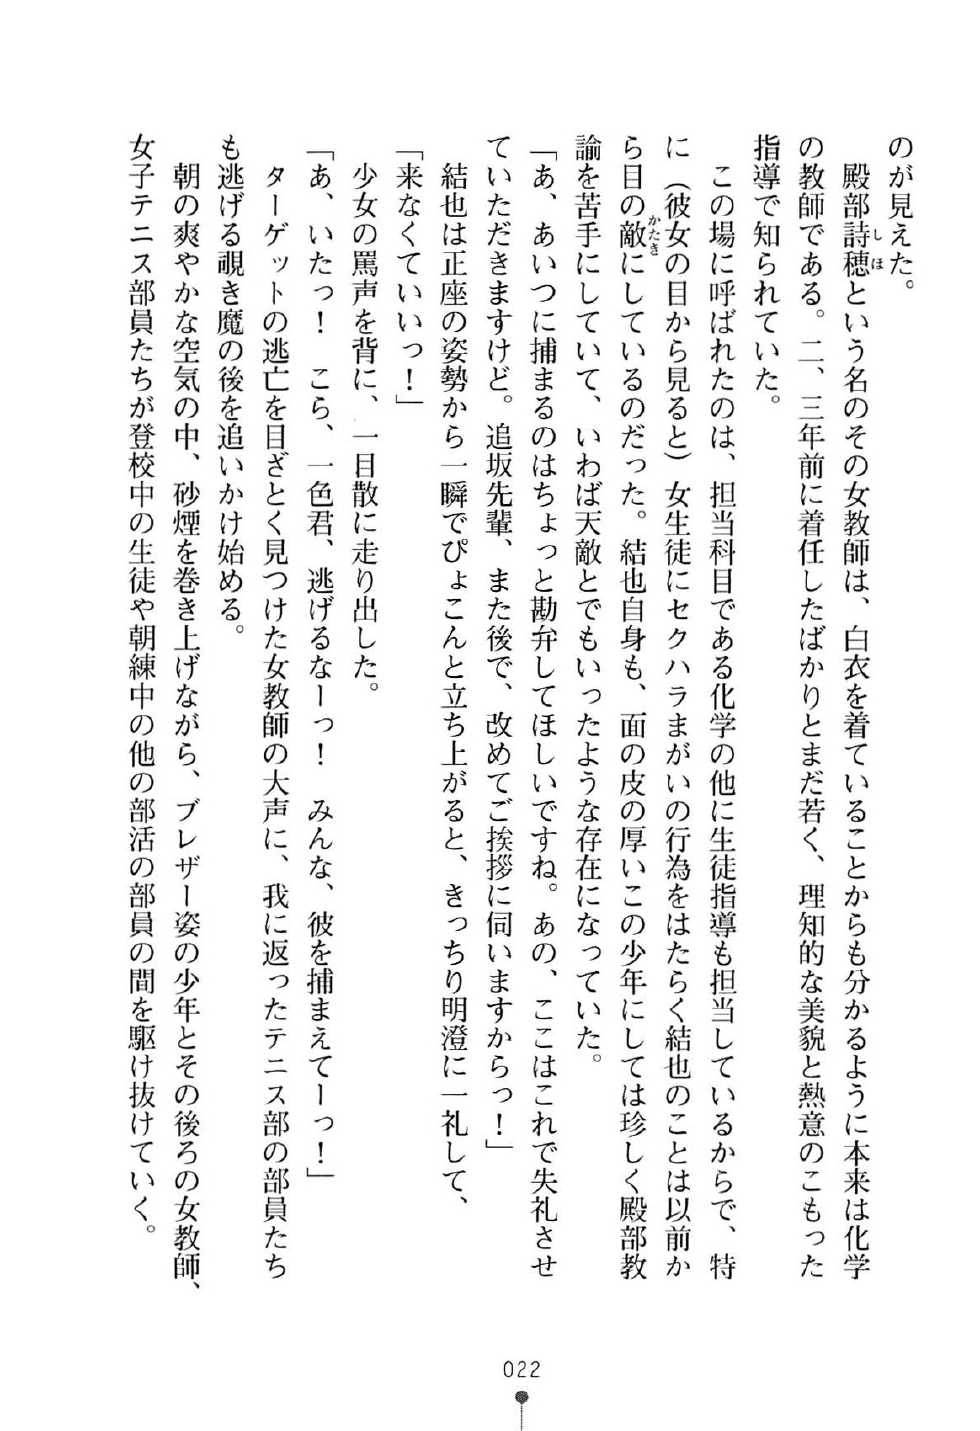 のが見えた。
　殿部詩穂という名のその女教師は、白衣を着ていることからも分かるように本来は化学
の教師である。二、三年前に着任したばかりとまだ若く、理知的な美貌と熱意のこもった
指導で知られていた。
　この場に呼ばれたのは、担当科目である化学の他に生徒指導も担当しているからで、特
に（彼女の目から見ると）女生徒にセクハラまがいの行為をはたらく結也のことは以前か
ら目の敵にしているのだった。結也自身も、面の皮の厚いこの少年にしては珍しく殿部教
諭を苦手にしていて、いわば天敵とでもいったような存在になっていた。
「あ、あいつに捕まるのはちょっと勘弁してほしいですね。あの、ここはこれで失礼させ
ていただきますけど。追坂先輩、また後で、改めてご挨拶に伺いますからっ！」
　結也は正座の姿勢から一瞬でぴょこんと立ち上がると、きっちり明澄に一礼して、
「来なくていいっ！」
　少女の罵声を背に、一目散に走り出した。
「あ、いたっ！　こら、一色君、逃げるなーっ！　みんな、彼を捕まえてーっ！」
　ターゲットの逃亡を目ざとく見つけた女教師の大声に、我に返ったテニス部の部員たち
も逃げる覗き魔の後を追いかけ始める。
　朝の爽やかな空気の中、砂煙を巻き上げながら、ブレザー姿の少年とその後ろの女教師、
女子テニス部員たちが登校中の生徒や朝練中の他の部活の部員の間を駆け抜けていく。
022